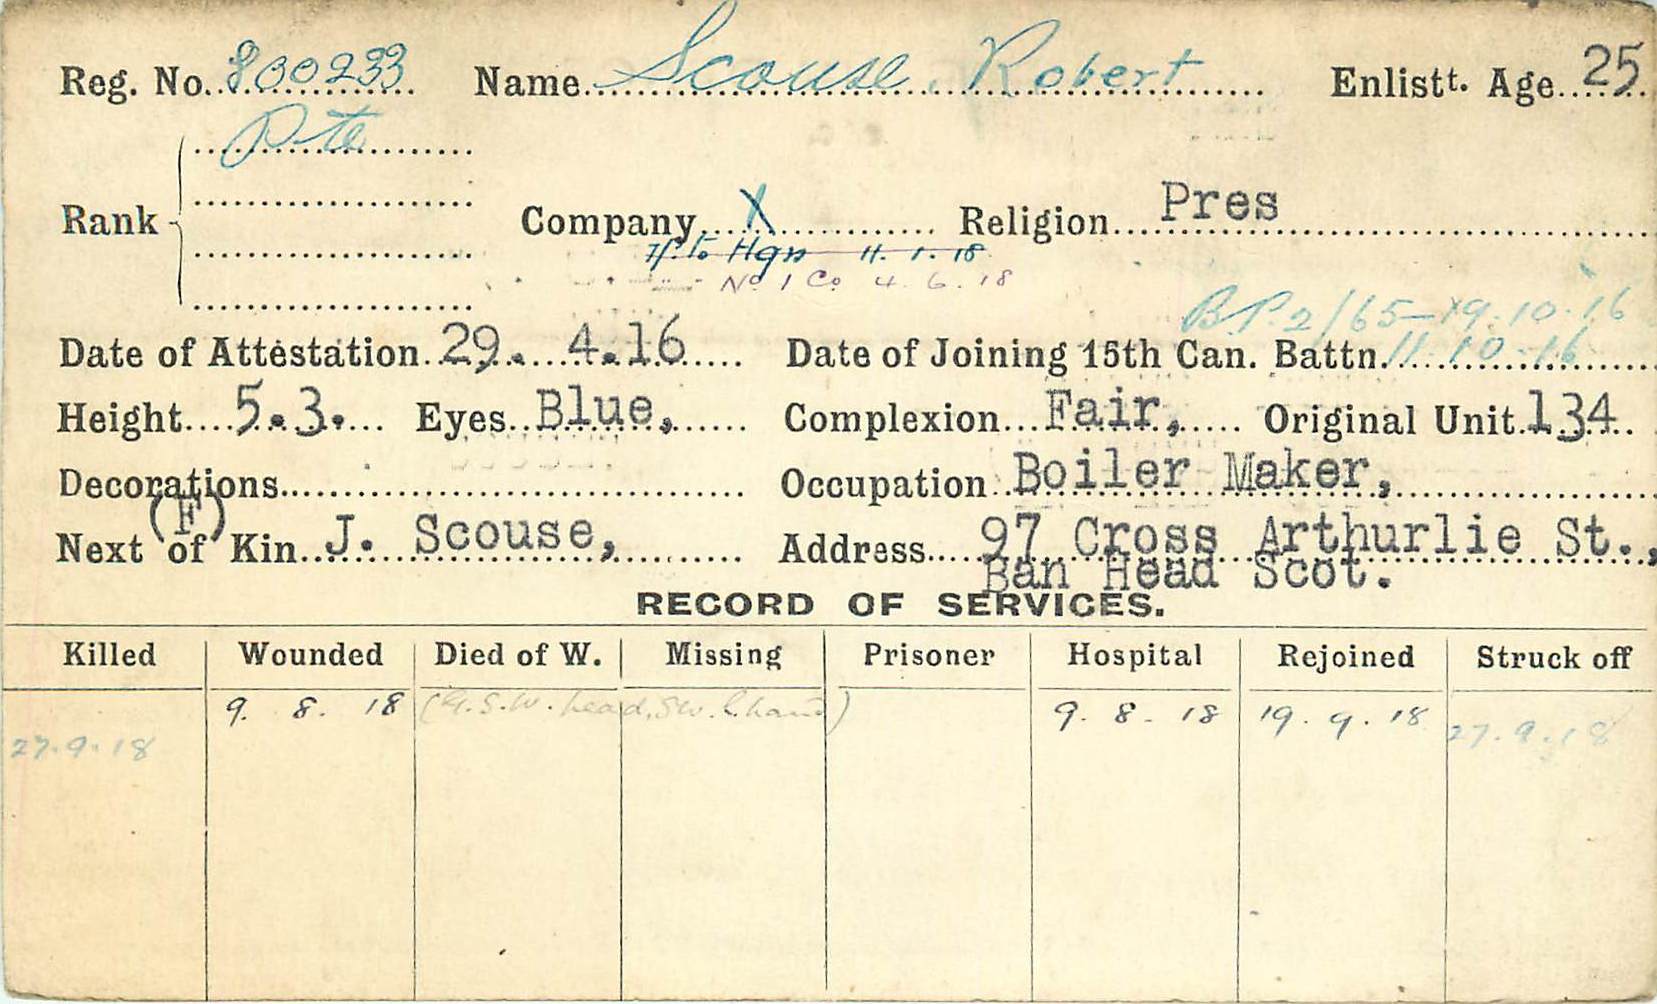 Reg. No. 800233 Name Scouse, Robert Enlistt. Age 25
Pte
Rank Company X Religion Pres
Tf. to Hqn 11.1.18
No 1 Co 4.6.18
B.P.2/65-19.10.16
Date of Attestation 29. 4.16 Date of Joining 15th Can. Battn. 11.10.16
Height 5.3. Eyes Blue, Complexion Fair, Original Unit 134
Decorations Occupation Boiler Maker,
(F)
Next of Kin J. Scouse, Address 97 Cross Arthurlie St.,
Ban Head Scot.
RECORD OF SERVICES.
Killed Wounded Died of W. Missing Prisoner Hospital Rejoined Struck off
9. 8. 18 (G.S.W. head, SW. l. hand) 9. 8. 18 19. 9. 18
27.9.18 27.9.18